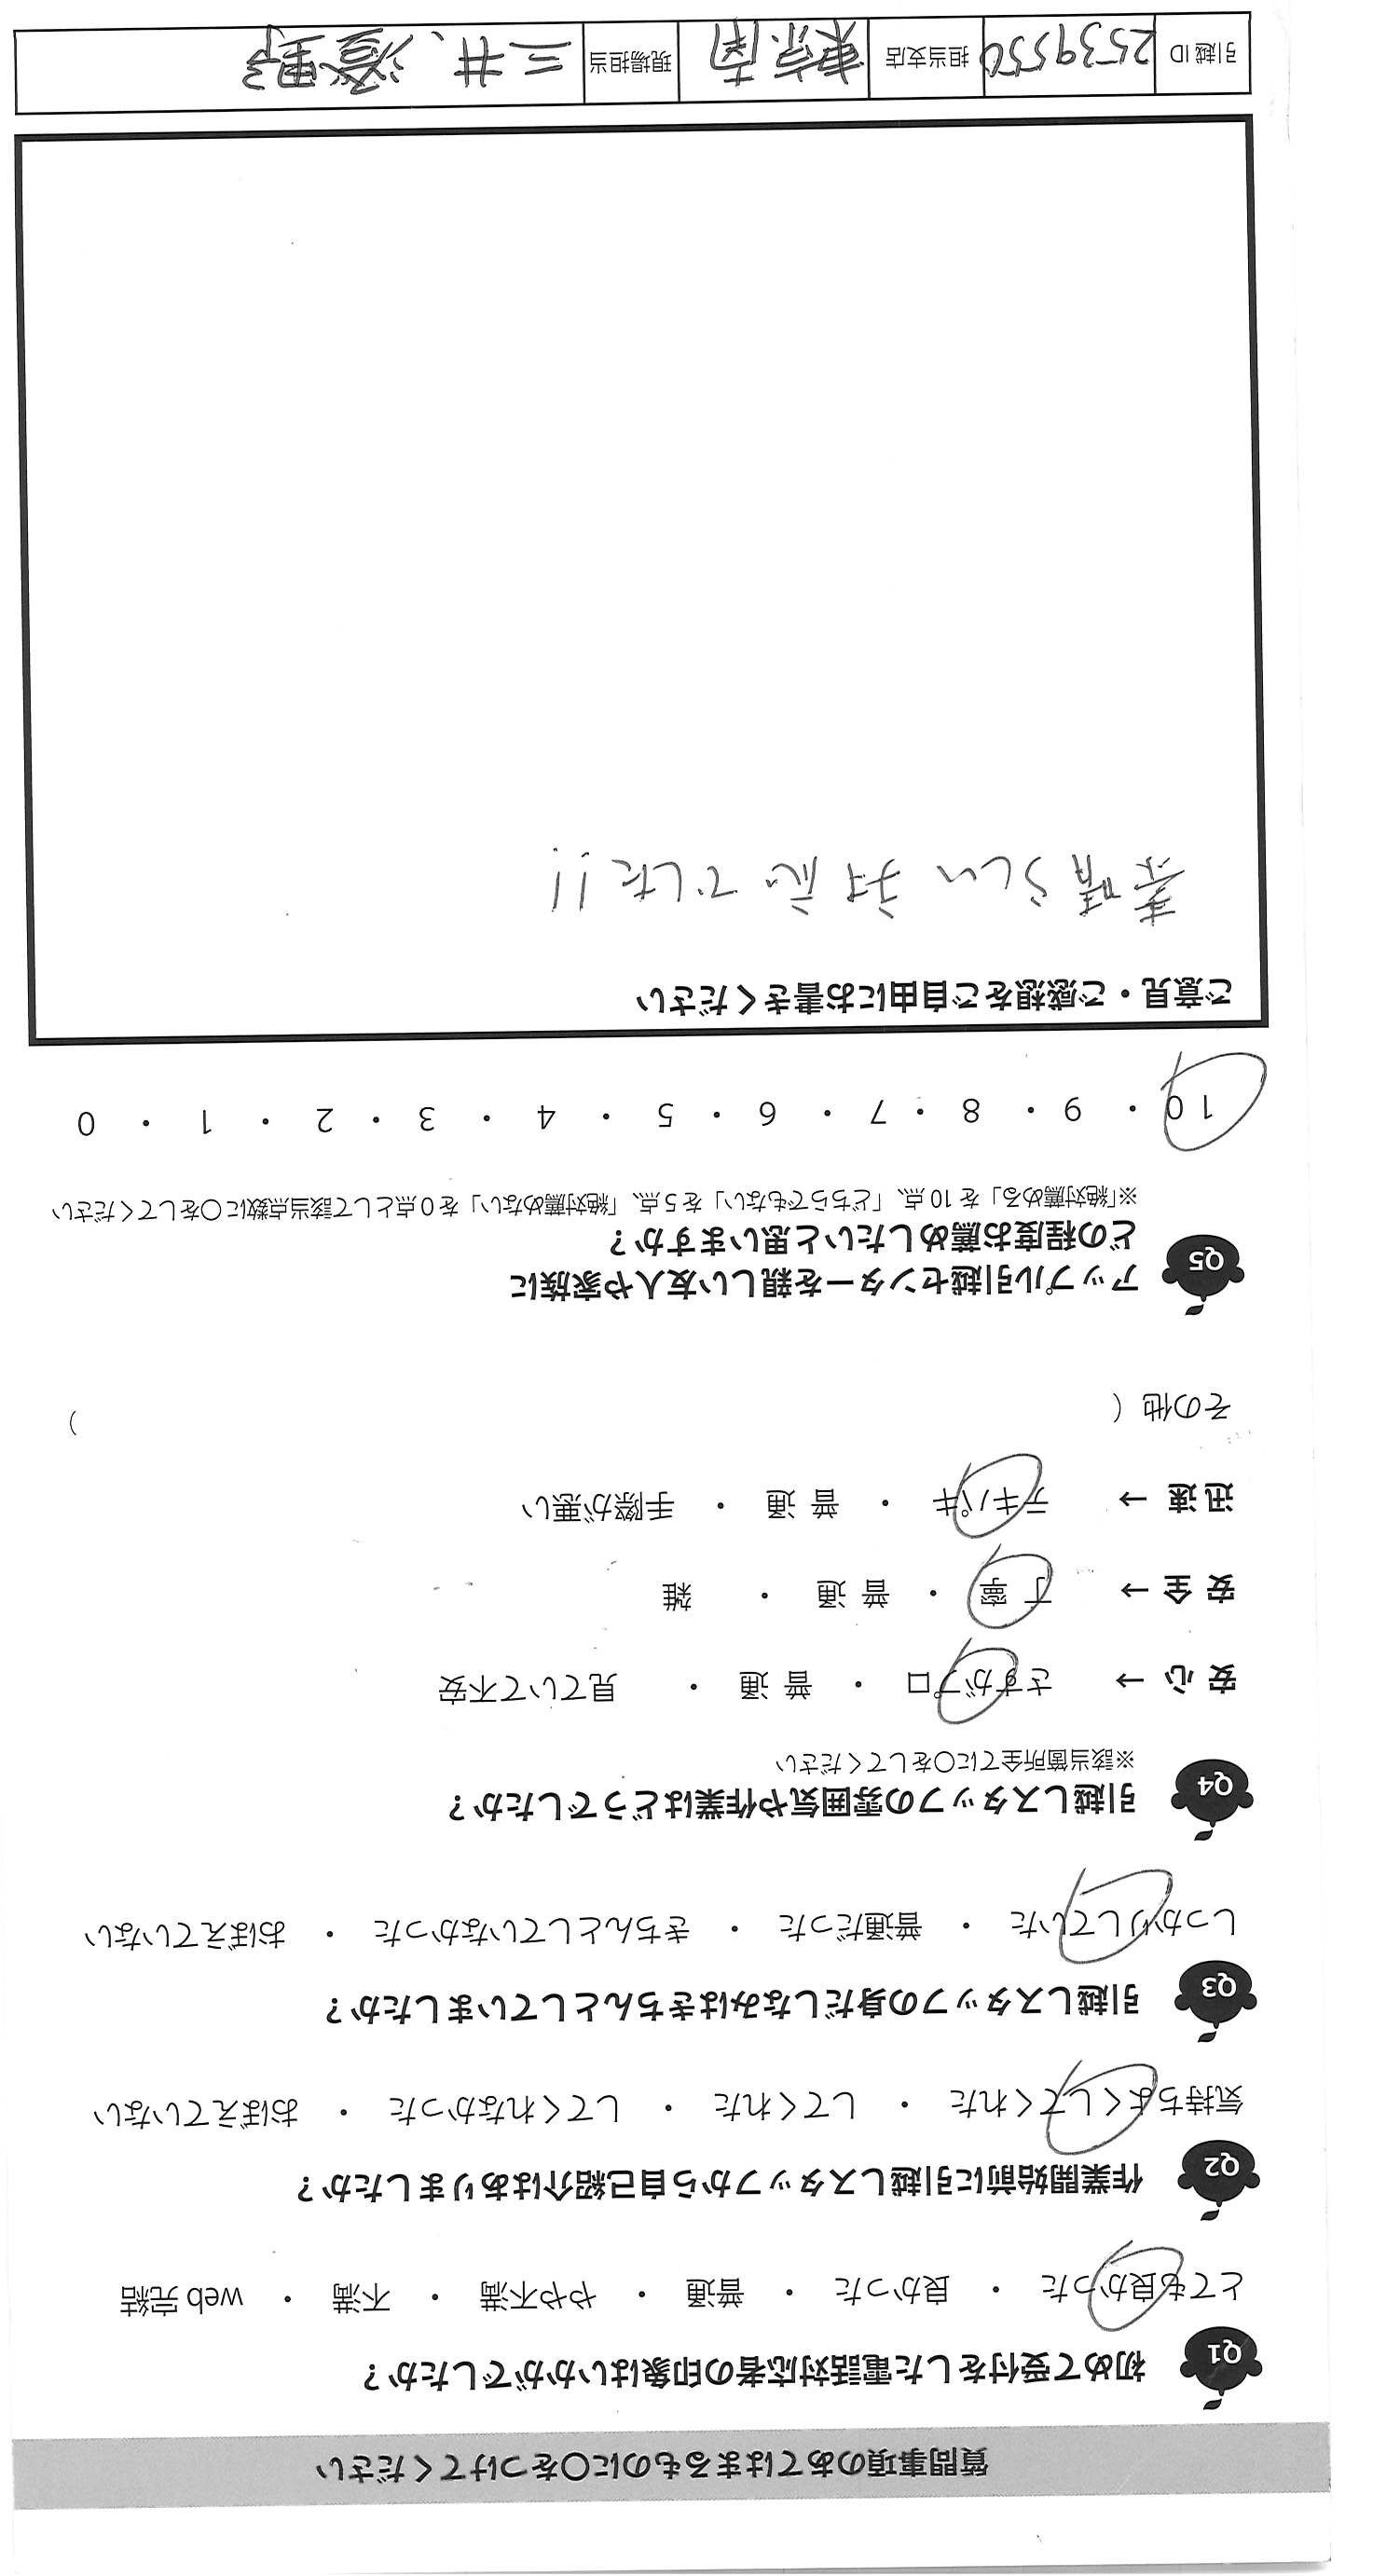 質問事項のあてはまるものに○をつけてください
Q1 初めて受付をした電話対応者の印象はいかがでしたか？
とても良かった ・ 良かった ・ 普通 ・ やや不満 ・ 不満 ・ web 完結
Q2 作業開始前に引越しスタッフから自己紹介はありましたか？
気持ちよくしてくれた ・ してくれた ・ してくれなかった ・ おぼえていない
Q3 引越しスタッフの身だしなみはきちんとしていましたか？
しっかりしていた ・ 普通だった ・ きちんとしていなかった ・ おぼえていない
Q4 引越しスタッフの雰囲気や作業はどうでしたか？
※該当箇所全てに○をしてください
安 心 → さすがプロ ・ 普 通 ・ 見ていて不安
安 全 → 丁 寧 ・ 普 通 ・ 雑
迅 速 → テキパキ ・ 普 通 ・ 手際が悪い
その他（ ）
Q5 アップル引越センターを親しい友人や家族に
どの程度お薦めしたいと思いますか？
※「絶対薦める」を 10 点、「どちらでもない」を 5 点、「絶対薦めない」を 0 点として該当点数に○をしてください
10 ・ 9 ・ 8 ・ 7 ・ 6 ・ 5 ・ 4 ・ 3 ・ 2 ・ 1 ・ 0
ご意見・ご感想をご自由にお書きください
素晴らしい対応でした!!
引越 ID 2539550 担当支店 東京南 現場担当 三井、澄野